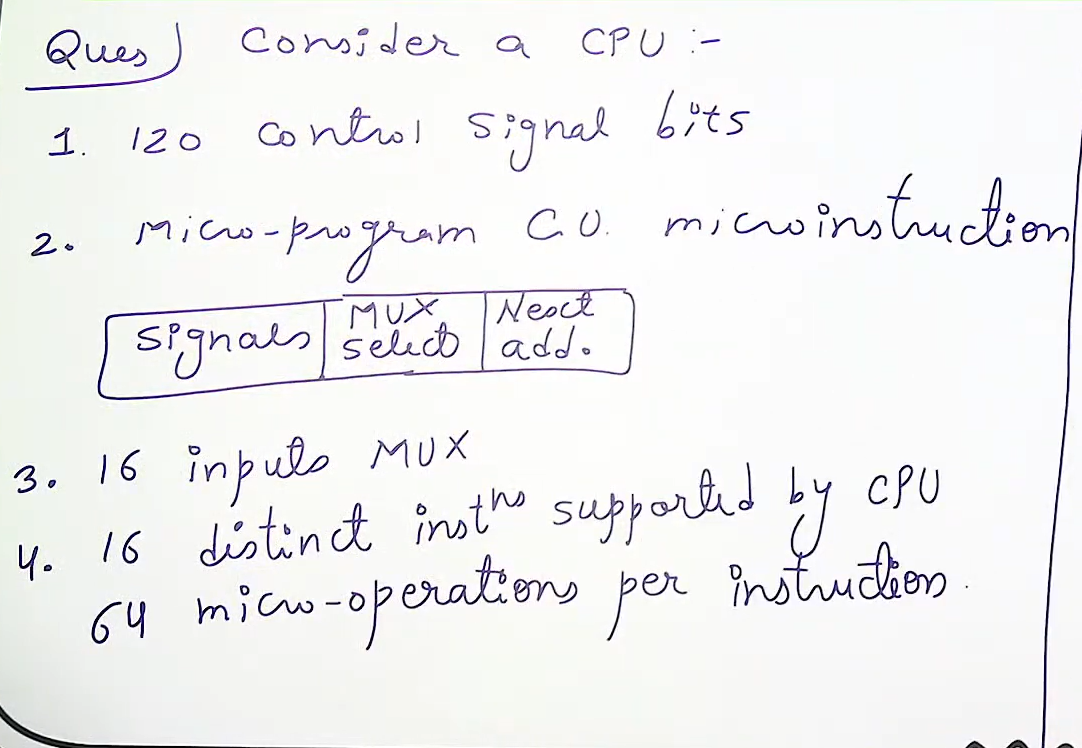 Ques) Consider a CPU :-
1. 120 control signal bits
2. Micro-program C.U. microinstruction
signals | MUX select | Next add.
3. 16 inputs MUX
4. 16 distinct instⁿˢ supported by CPU
64 micro-operations per instruction.